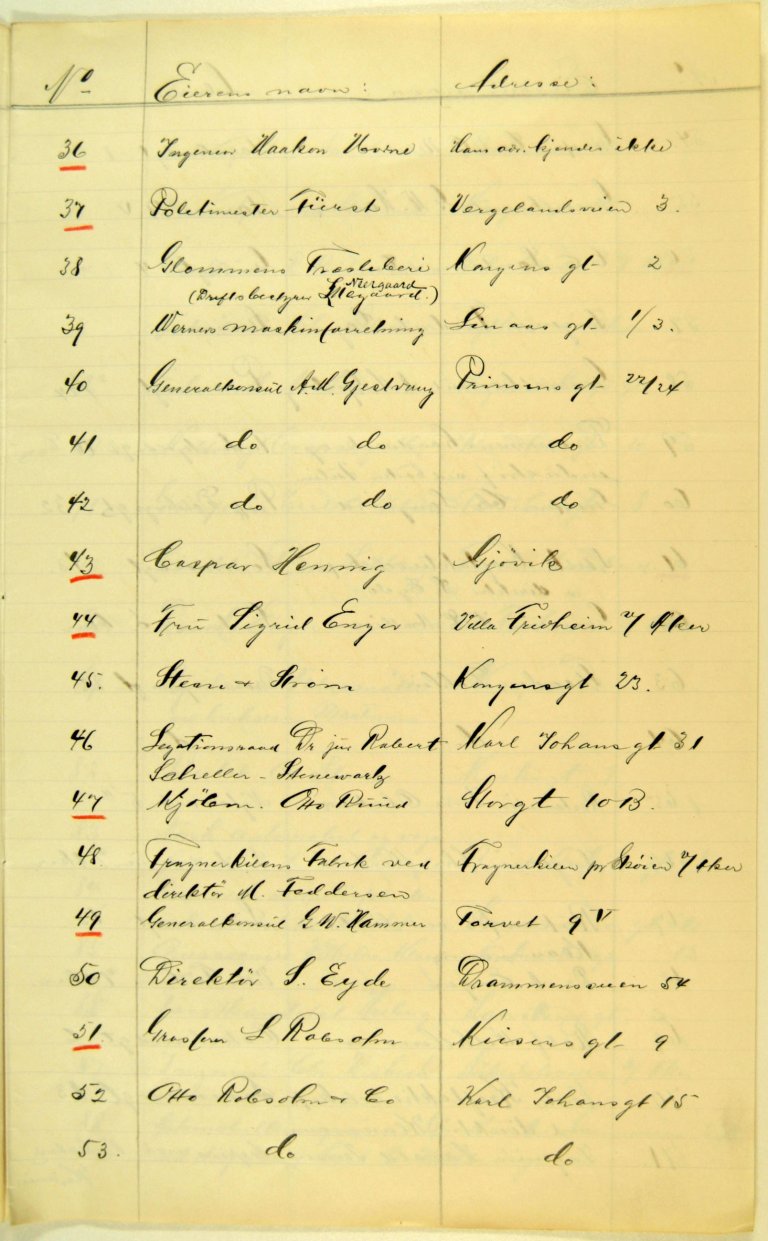 No Eierens navn: Adresse:
36 Ingeniør Haakon Hovind Hans adr. kjendes ikke
37 Politimester Fürst Vergelandsveien 3.
38 Glommens Træsliberi Kongens gt 2
Neergaard
(Driftsbestyrer)
39 Werners maskinforretning Linaas gt 1/3.
40 Generalkonsul A.M. Gjestvang Prinsens gt 22/24
41 do do do
42 do do do
43 Caspar Hennig Gjövik
44 Fru Sigrid Enger Villa Fridheim v/ Aker
45. Steen & Strøm Kongensgt 23.
46 Legationsraad Dr jur Robert Karl Johans gt 31
Scheller - Stenewartz
47 Kjöbm. Otto Ruud Storgt 10 B.
48. Frognerkilens Fabrik ved Frognerkilen pr Skøien v/Aker
direktör M. Feddersen
49 Generalkonsul G.W. Hammer Torvet 9 V
50 Direktör S. Eyde Drammensveien 54
51. Grosserer L Robsahm Keisers gt 9
52 Otto Robsahm & Co Karl Johansgt 15
53. do do